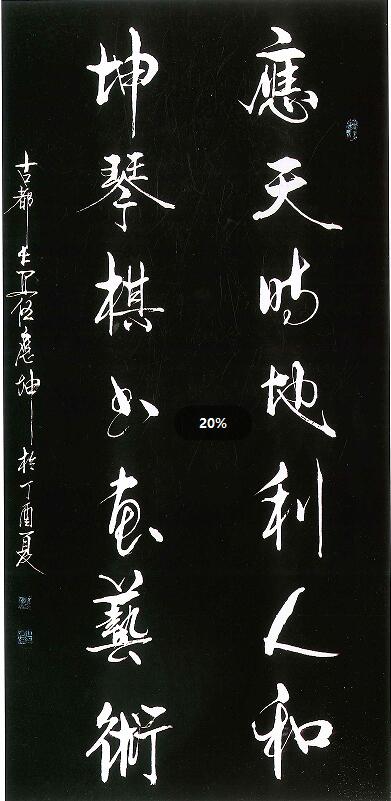 應天時地利人和
坤琴棋书画藝術
古都應坤於丁酉夏
20%